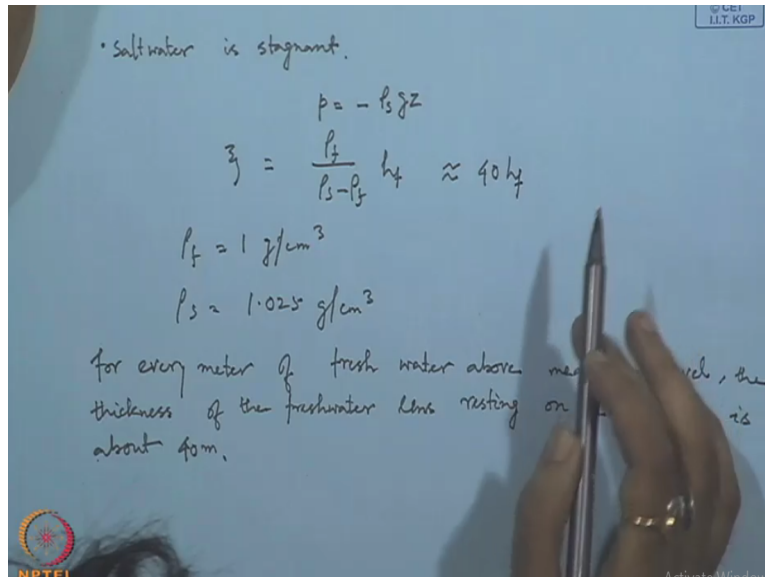 © CET
I.I.T. KGP
• Saltwater is stagnant.
p = - ρs gz
ξ = ρf / (ρs - ρf) hf ≈ 40 hf
ρf = 1 g/cm³
ρs = 1.025 g/cm³
for every meter of fresh water above the
thickness of the freshwater lens resting on is
about 40m.
NPTEL